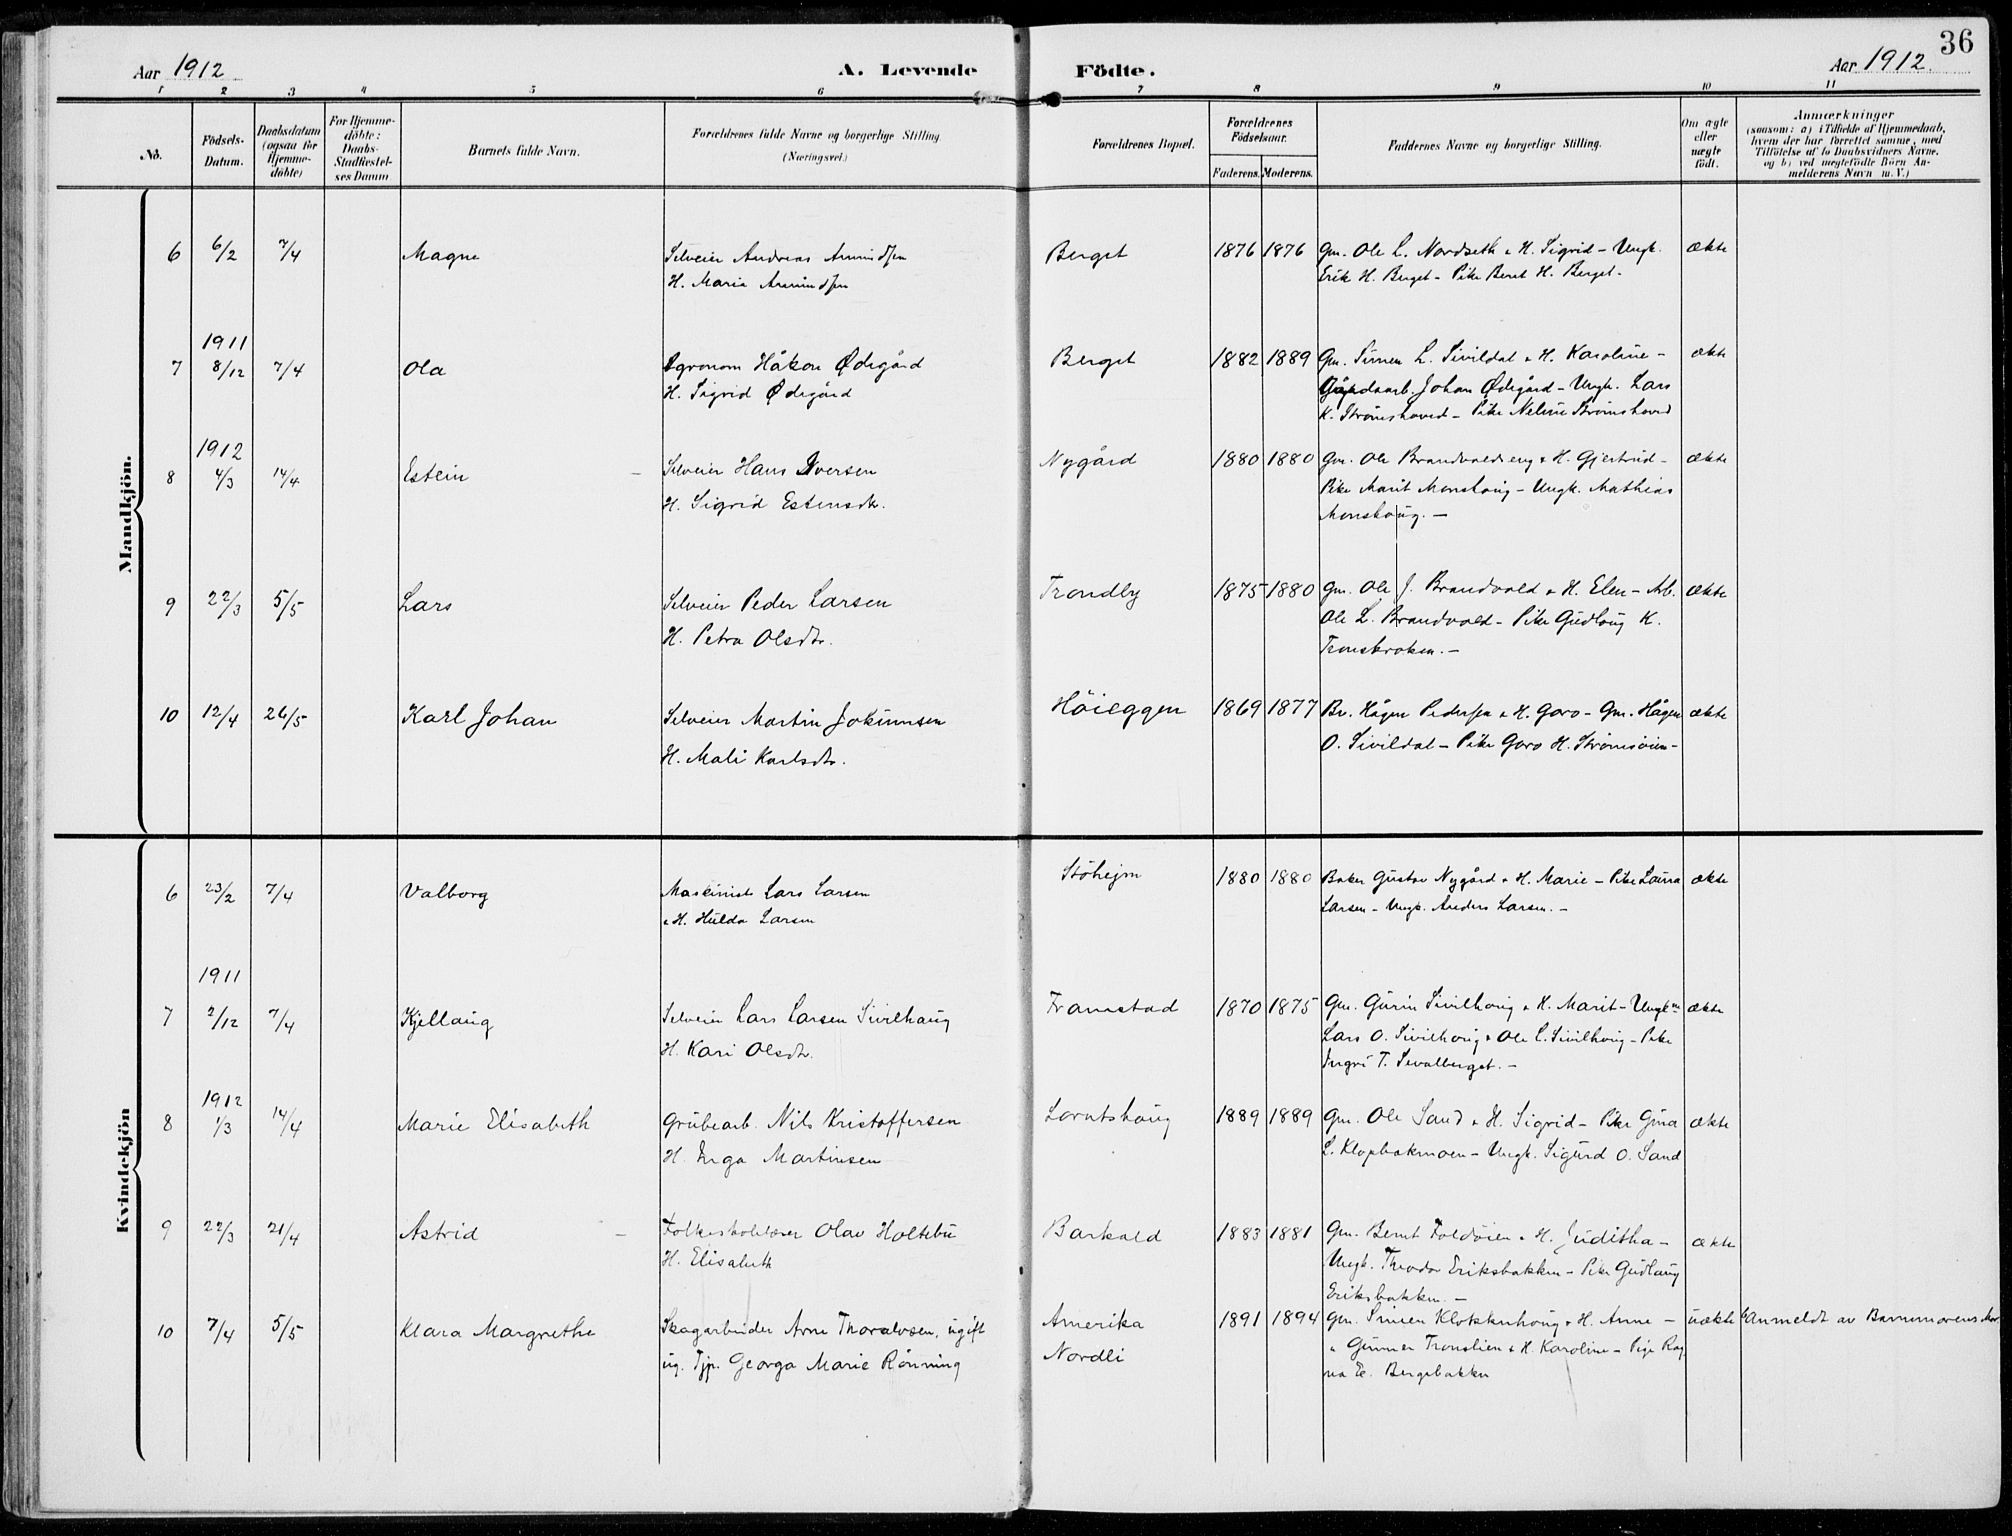 36
Aar 1912
A. Levende
Födte.
Aar 1912.
1 2 3 4 5 6 7 8 9 10 11
No.
Födsels-
Datum.
Daabsdatum
(ogsaa for
Hjemme-
döbte)
For Hjemme-
döbte:
Daabs-
Stadfæstel-
ses Datum
Barnets fulde Navn.
Forældrenes fulde Navne og borgerlige Stilling.
(Næringsvei.)
Forældrenes Bopæl.
Forældrenes
Födselsaar.
Faderens. Moderens.
Faddernes Navne og borgerlige Stilling.
Om ægte
eller
uægte
födt.
Anmærkninger
(saasom: a) i Tilfælde af Hjemmedaab,
hvem der har forrettet samme, med
Tilföielse af to Daabsvidners Navne,
og b) ved uegtefödte Börn An-
melderens Navn m. V.)
Mandkjön.
6 6/2 7/4 Magne Selveier Andreas Amundsen Berget 1876 1876 Gm. Ole L. Nordseth & H. Sigrid - Ungk. ækte
H. Maria Amundsen Erik H. Berget - Pike Beret H. Berget.
1911
7 8/12 7/4 Ola Agronom Håkon Ødegård Berget 1882 1889 Gm. Simen L. Sivildal & H. Karoline - ækte
H. Sigrid Ødegård Gårdsarb. Johan Ødegård - Ungk. Lars
K. Strömshoved - Pike Neline Strömshoved
1912
8 4/3 14/4 Estein - Selveier Hans Iversen Nygård 1880 1880 Gm. Ole Brandvoldseng & H. Gjertrud - ækte
H. Sigrid Estensdtr. Pike Marit Monshaug - Ungk. Mathias
Monshaug. -
9 22/3 5/5 Lars Selveier Peder Larsen Trondby 1875 1880 Gm. Ole J. Brandvold & H. Elen - Arb. ækte
H. Petra Olsdtr. Ole L. Brandvold - Pike Gudlaug K.
Tronskroken. -
10 12/4 26/5 Karl Johan Selveier Martin Jokumsen Höieggen 1869 1877 Br. Hågen Pedersen & H. Goro - Gm. Hågen ækte
H. Mali Karlsdtr. O. Sivildal - Pike Goro H. Strömsöien -
Kvindekjön
6 23/2 7/4 Valborg Maskinist Lars Larsen Stöhejm 1880 1880 Baker Gustav Nygård & H. Marie - Pike Laura ækte
& H. Hulda Larsen Larsen - Ungk. Anders Larsen. -
1911
7 2/12 7/4 Kjellaug Selveier Lars Larsen Sivilhaug Framstad 1870 1875 Gm. Gurin Sivilhaug & H. Marit - Ungkm ækte
H. Kari Olsdtr. Lars O. Sivilhaug & Ole L. Sivilhaug - Pike
Ingri T. Sevalberget. -
1912
8 1/3 14/4 Marie Elisabeth Grubearb. Nils Kristoffersen Lorntshaug 1889 1889 Gm. Ole Sand & H. Sigrid - Pike Gina ækte
H. Inga Martinsen L. Klopbakmoen - Ungk. Sigurd O. Sand
9 22/3 21/4 Astrid - Folkeskolelærer Olav Holtebu Barkald 1883 1881 Gm. Bernt Foldöien & H. Juditha - ækte
H. Elisabeth Ungk. Theodor Eriksbakken - Pike Gudlaug
Eriksbakken. -
10 7/4 5/5 Klara Margrethe Skogarbeider Arne Thoralvsen, ugift Amerika 1891 1894 Gm. Simen Klokkerhaug & H. Anne - uækte Anmeldt av Barnemorens Mor
ug. Tjp. Georga Marie Rönning Nordli " Gunner Tronslien & H. Karoline - Pige Rag
na E. Bergebakken